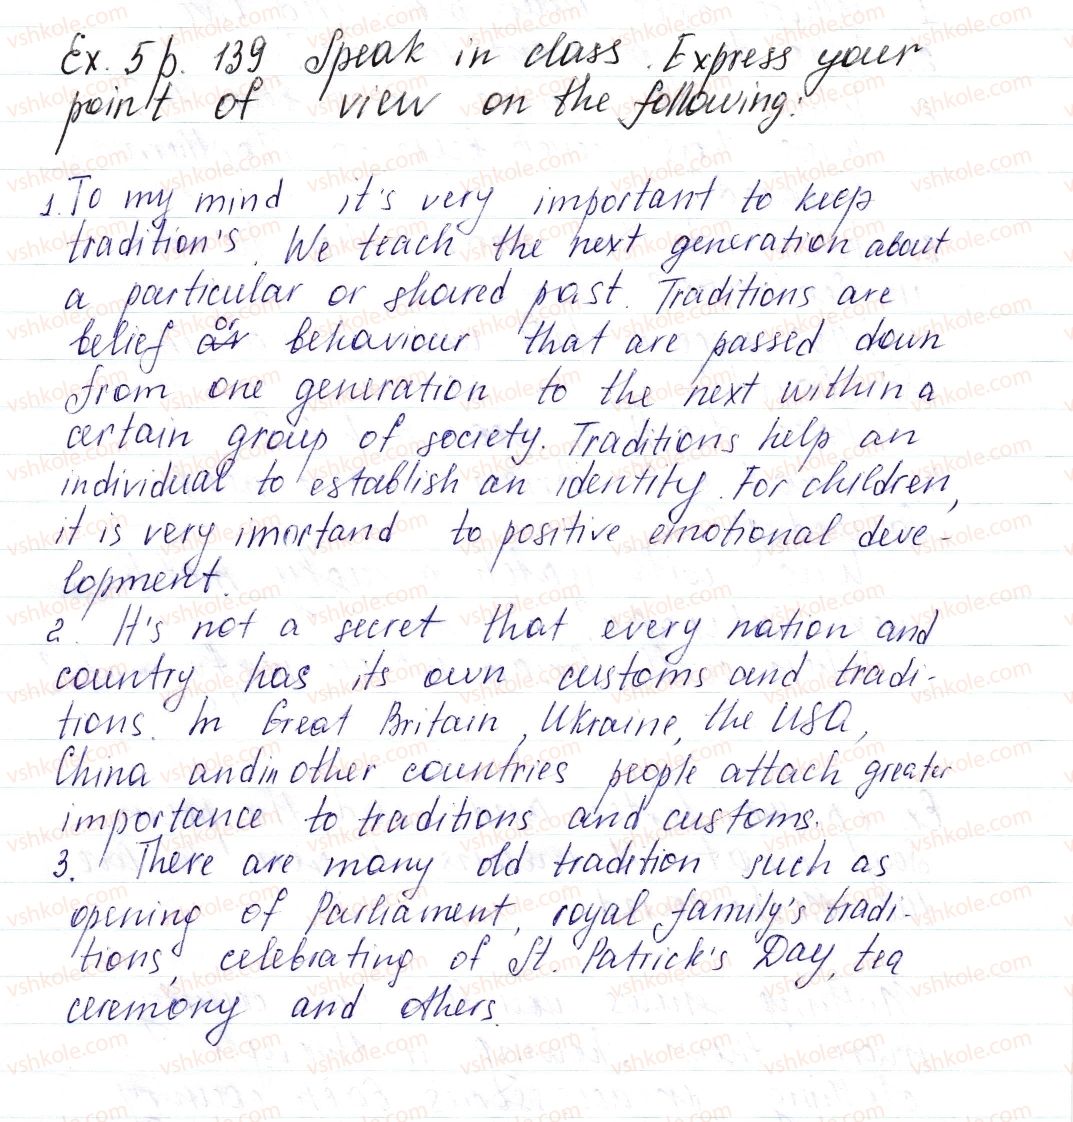 Ex. 5 p. 139 Speak in class. Express your
point of view on the following:
1. To my mind it's very important to keep
tradition's. We teach the next generation about
a particular or shared past. Traditions are
belief or behaviour that are passed down
from one generation to the next within a
certain group of society. Traditions help an
individual to establish an identity. For children,
it is very imortand to positive emotional deve-
lopment.
2. It's not a secret that every nation and
country has its own customs and tradi-
tions. In Great Britain, Ukraine, the USA,
China and in other countries people attach greater
importance to traditions and customs.
3. There are many old tradition such as
opening of Parliament, royal family's tradi-
tions, celebrating of St. Patrick's Day, tea
ceremony and others.